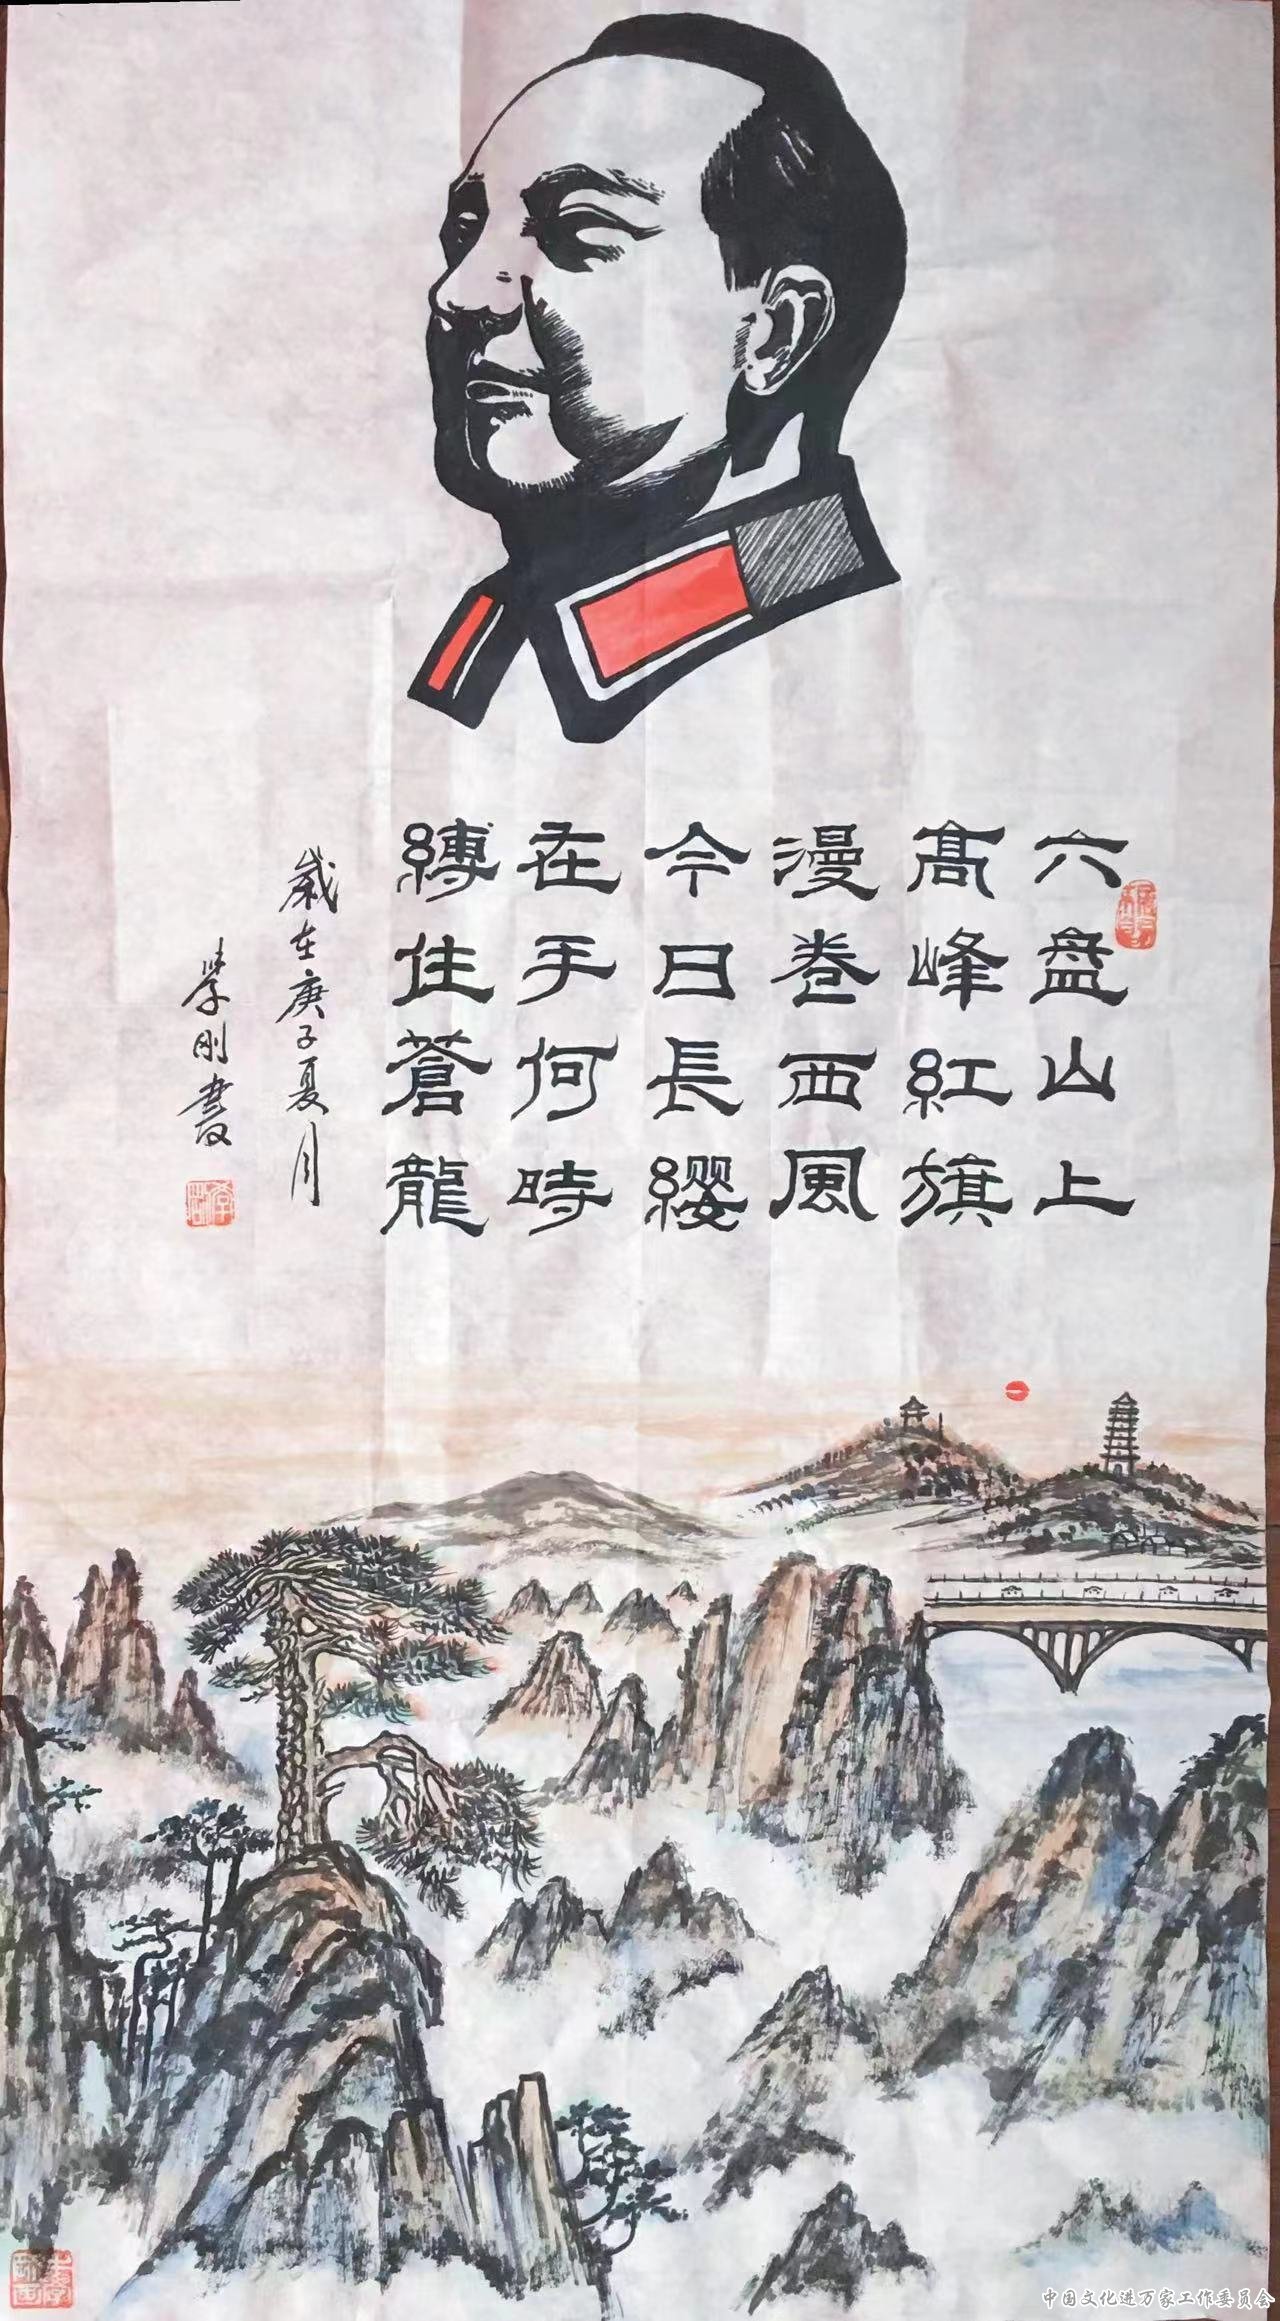 六盘山上
髙峰紅旗
漫卷西風
今日長纓
在手何時
縛住蒼龍
歲在庚子夏月
學刚書
中国文化进万家工作委员会